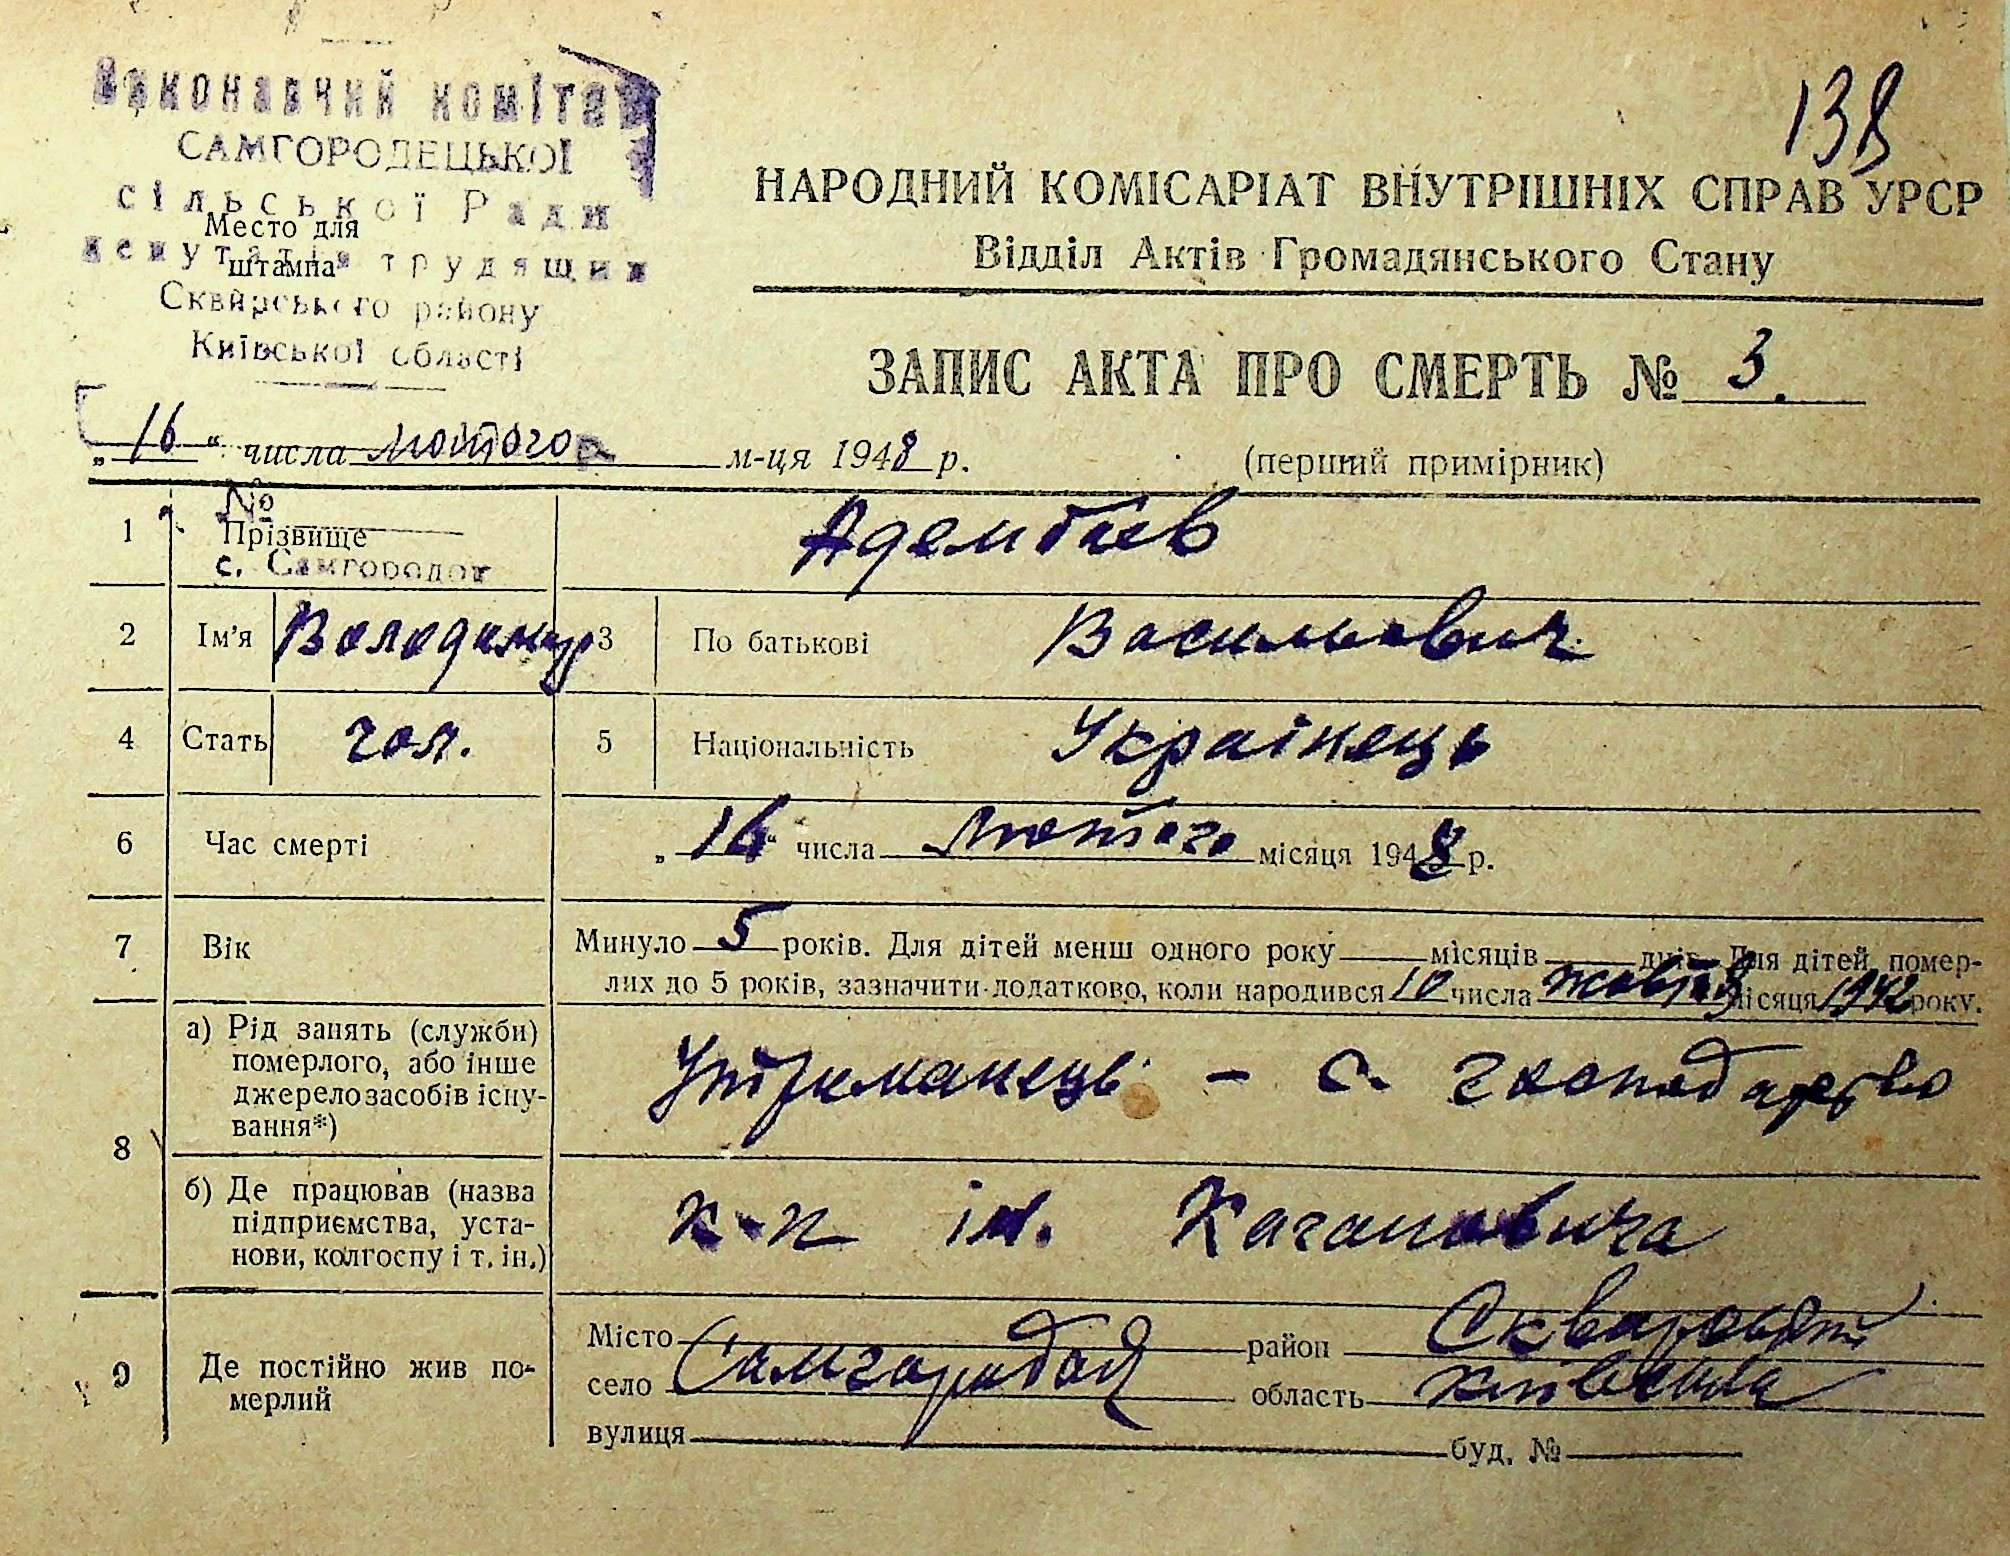 138
Виконавчий комітет
САМГОРОДЕЦЬКОЇ
сільської Ради
депутатів трудящих
Сквирського району
Київської області
Место для
штампа
НАРОДНИЙ КОМІСАРІАТ ВНУТРІШНІХ СПРАВ УРСР
Відділ Актів Громадянського Стану
ЗАПИС АКТА ПРО СМЕРТЬ № 3.
„16“ числа лютого м-ця 1948 р.
(перший примірник)
№
с. Самгородок
1 Прізвище Адембаев
2 Ім'я Володимир 3 По батькові Васильович
4 Стать чол. 5 Національність Українець
6 Час смерті „16“ числа Лютого місяця 1948 р.
7 Вік Минуло 5 років. Для дітей менш одного року місяців днів. Для дітей, помер-
лих до 5 років, зазначити додатково, коли народився 10 числа жовтня місяця 1942 року.
8 а) Рід занять (служби)
померлого, або інше
джерело засобів існу-
вання*)
Утриманець - с. господарство
б) Де працював (назва
підприємства, уста-
нови, колгоспу і т. ін.)
к-п ім. Кагановича
9 Де постійно жив по-
мерлий
Місто район
село Самгородок область Київська
вулиця буд. №